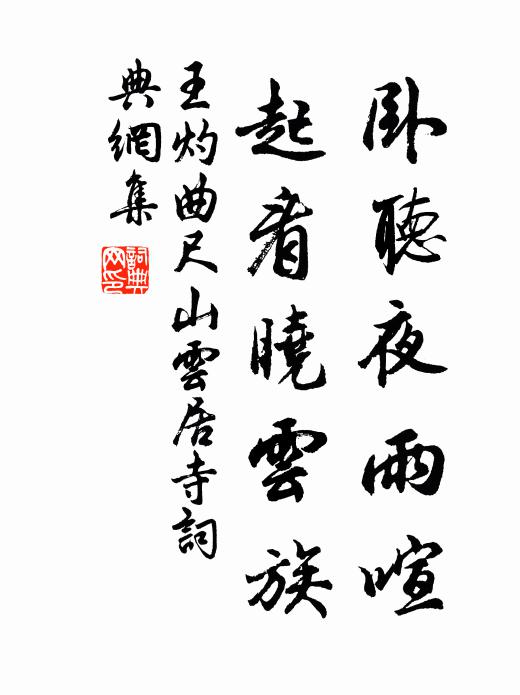 卧聽夜雨喧
起看曉雲族
王灼曲尺山雲居寺詞
典網集
詞典網印